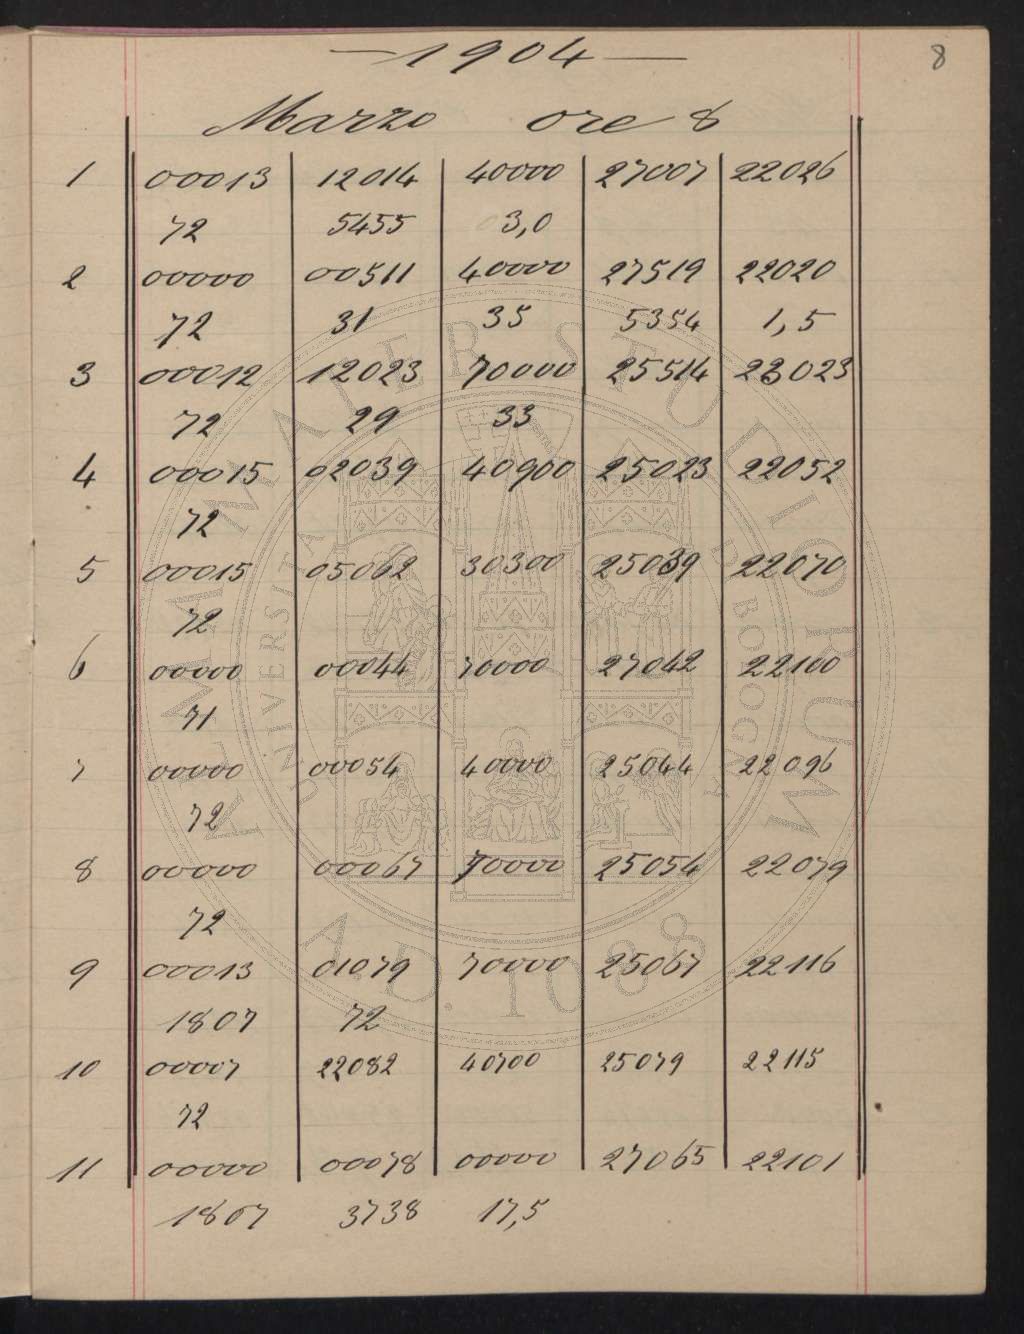 8
— 1904 —
Marzo ore 8
1 00013 12014 40000 27007 22026
72 5455 3,0
2 00000 00511 40000 27519 22020
72 31 35 5354 1,5
3 00012 12023 70000 25514 23023
72 29 33
4 00015 02039 40900 25023 22052
72
5 00015 05062 30300 25039 22070
72
6 00000 00044 70000 27042 22100
71
7 00000 00054 40000 25044 22096
72
8 00000 00067 70000 25054 22079
72
9 00013 01079 70000 25067 22116
1807 72
10 00007 22082 40700 25079 22115
72
11 00000 00078 00000 27065 22101
1807 3738 17,5
ALMA MATER STUDIORUM
UNIVERSITÀ DI BOLOGNA
A.D. 1088